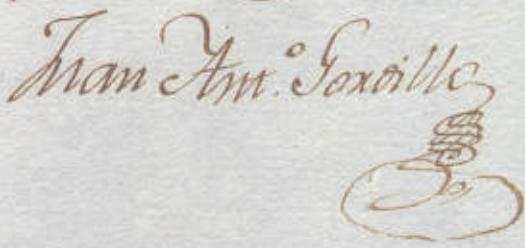 Juan Ant.º Gorville